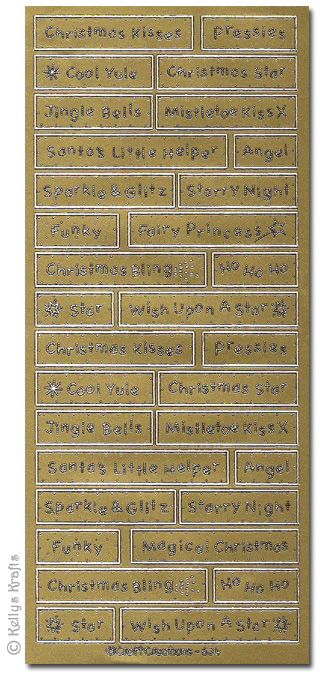 Christmas Kisses Pressies
Cool Yule Christmas Star
Jingle Bells Mistletoe Kiss X
Santa's Little Helper Angel
Sparkle & Glitz Starry Night
Funky Fairy Princess
Christmas Bling Ho Ho Ho
Star Wish Upon A Star
Christmas Kisses Pressies
Cool Yule Christmas Star
Jingle Bells Mistletoe Kiss X
Santa's Little Helper Angel
Sparkle & Glitz Starry Night
Funky Magical Christmas
Christmas Bling Ho Ho Ho
Star Wish Upon A Star
©Craft Creations
© Kellys Krafts